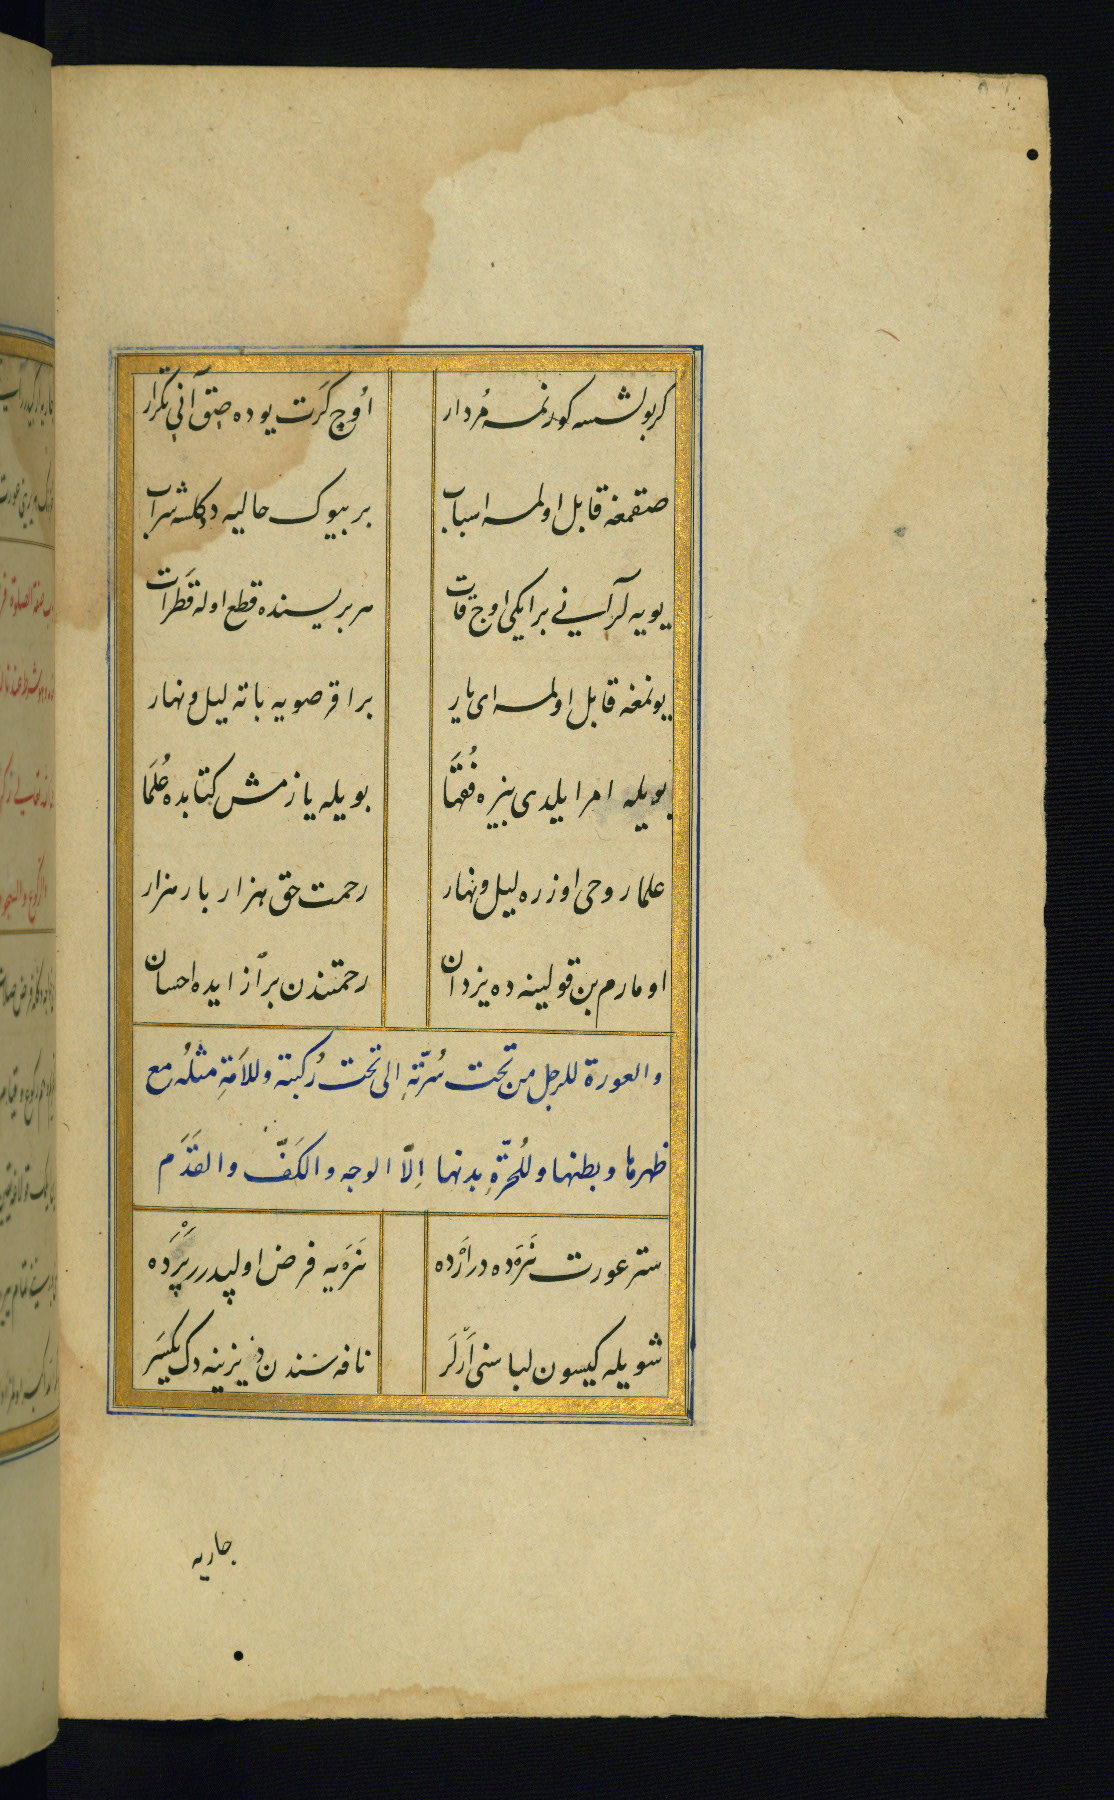 كر بولشسه كورنمسه مُردار اُوچ كرَت يوده صِق آنى تكرار
صقمغه قابل اولمسه اسباب بر بيوك حاليه دكلسه شراب
يويه لر آنى بر ايكى اوچ قات هر بريسنده قطع اوله قطَرات
يونمغه قابل اولمسه اى يار براقر صويه باته ليل ونهار
بويله امر ايلدى بزه فُقهَا بويله يازمش كتابده عُلمَا
علما روحى اوزره ليل ونهار رحمت حق هزار بار هزار
اومارم بن قولينه ده يزدان رحمتندن بر آز ايده احسان
والعورة للرجل من تحت سُرّتهِ الى تحت رُكبته وللاَمَةِ مثلُه مع
ظهرها وبطنها وللُحرّةِ بدنها اِلاّ الوجه والكَفّ والقَدَم
ستر عورت نَرَه ده در اَرْده نَرَه يه فرض اوليدر پَرْدَه
شويله كيسون لباسنى اَرْلَر نافه سندن ديزينه دك يكسَر
جاريه